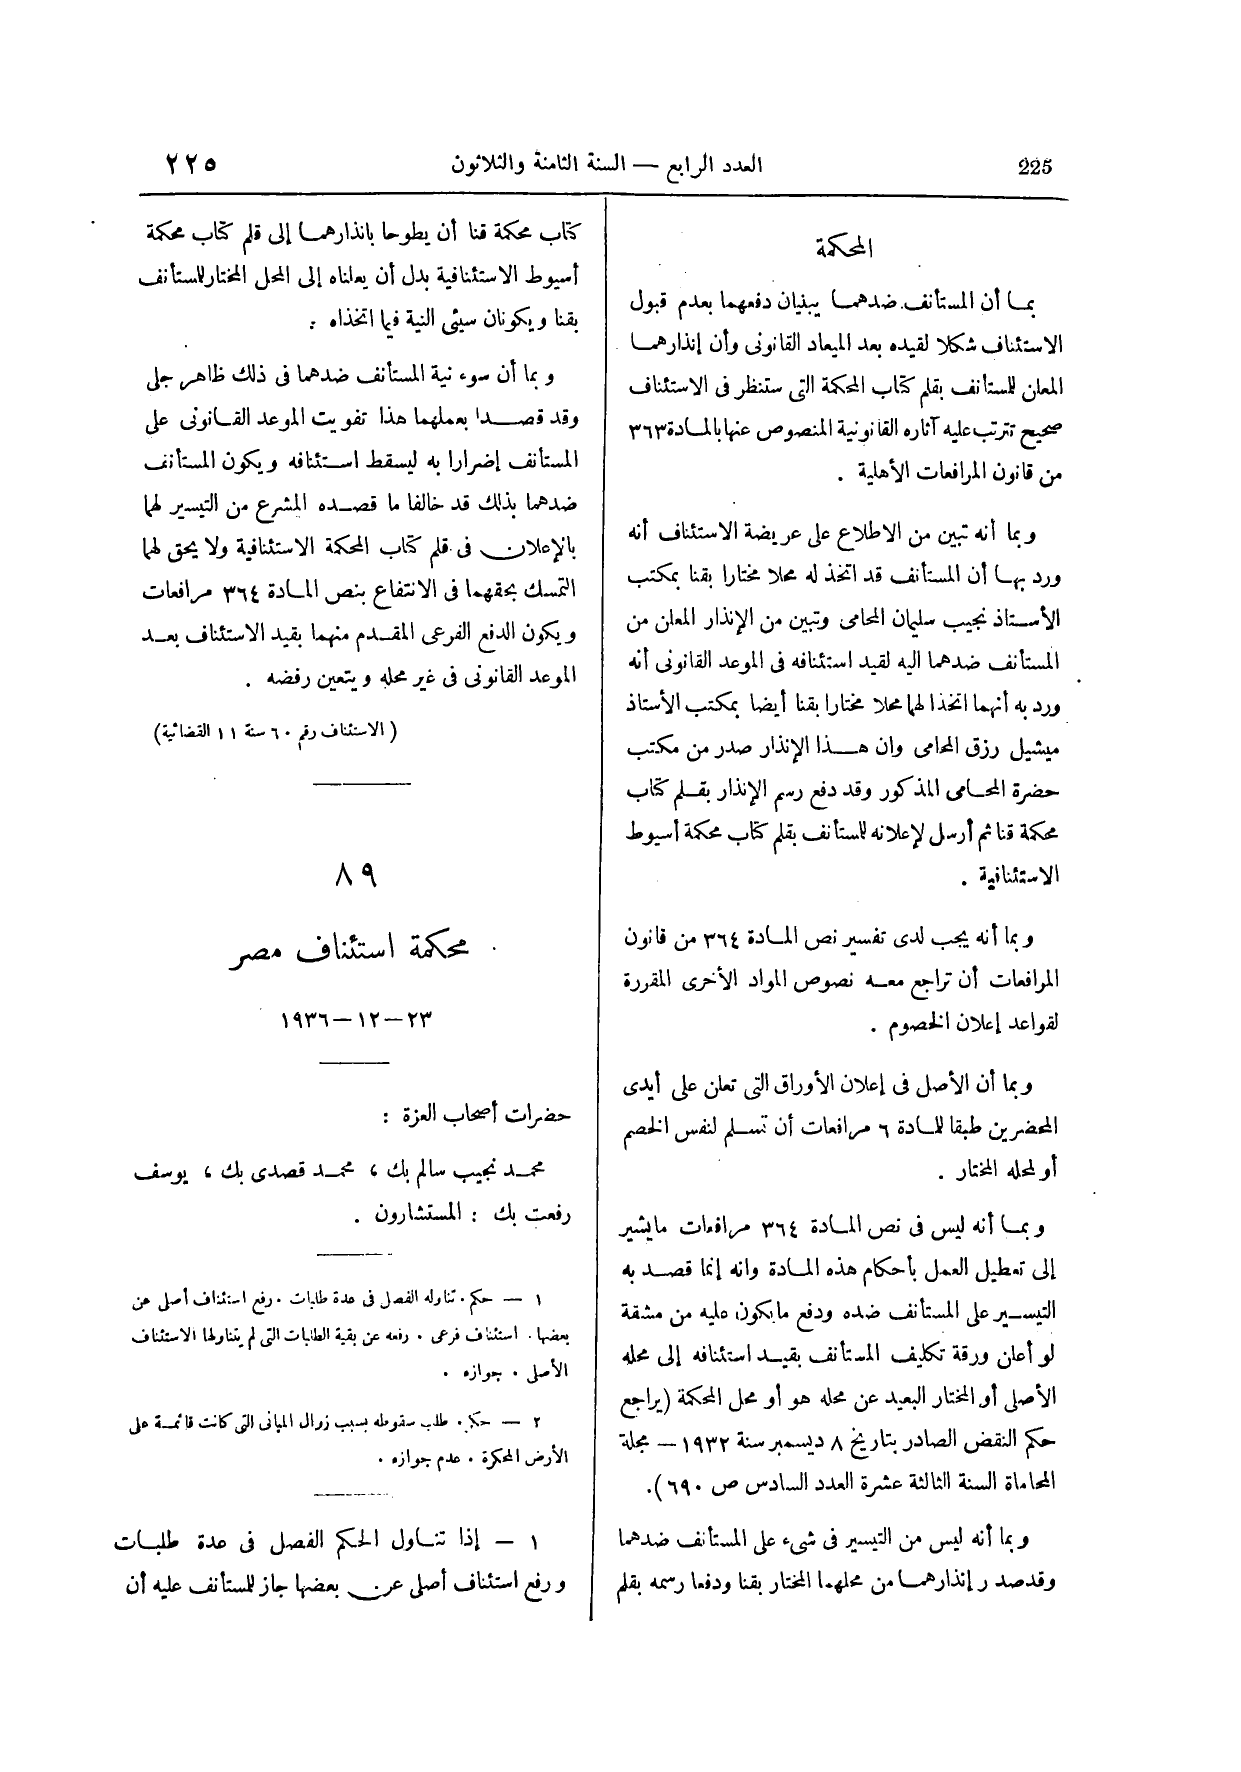 225
العدد الرابع — السنة الثامنة والثلاثون
٢٢٥
المحكمة
بما أن المستأنف ضدهما يبنيان دفعهما بعدم قبول
الاستئناف شكلا لقيده بعد الميعاد القانونى وأن إنذارهما
المعلن للستأنف بقلم كتاب المحكمة التى ستنظر فى الاستئناف
صحيح تترتب عليه آثاره القانونية المنصوص عنها بالمادة ٣٦٣
من قانون المرافعات الأهلية .
وبما أنه تبين من الاطلاع على عريضة الاستئناف أنه
ورد بها أن المستأنف قد اتخذ له محلا مختارا بقنا بمكتب
الأستاذ نجيب سليمان المحامى وتبين من الإنذار المعلن من
المستأنف ضدهما اليه لقيد استئنافه فى الموعد القانونى أنه
ورد به أنهما اتخذا لهما محلا مختارا بقنا أيضا بمكتب الأستاذ
ميشيل رزق المحامى وان هذا الإنذار صدر من مكتب
حضرة المحامى المذكور وقد دفع رسم الإنذار بقلم كتاب
محكمة قنا ثم أرسل لإعلانه للستأنف بقلم كتاب محكمة أسيوط
الاستئنافية .
وبما أنه يجب لدى تفسير نص المادة ٣٦٤ من قانون
المرافعات أن تراجع معه نصوص المواد الأخرى المقررة
لقواعد إعلان الخصوم .
وبما أن الأصل فى إعلان الأوراق التى تعلن على أيدى
المحضرين طبقا للمادة ٦ مرافعات أن تسلم لنفس الخصم
أو لمحله المختار .
وبما أنه ليس فى نص المادة ٣٦٤ مرافعات مايشير
إلى تعطيل العمل بأحكام هذه المادة وانه إنما قصد به
التيسير على المستأنف ضده ودفع مايكون عليه من مشقة
لو أعلن ورقة تكليف المستأنف بقيد استئنافه إلى محله
الأصلى أو المختار البعيد عن محله هو أو محل المحكمة (يراجع
حكم النقض الصادر بتاريخ ٨ ديسمبر سنة ١٩٣٢ — مجلة
المحاماة السنة الثالثة عشرة العدد السادس ص ٦٩٠).
وبما أنه ليس من التيسير فى شىء على المستأنف ضدهما
وقد صدر إنذارهما من محلهما المختار بقنا ودفعا رسمه بقلم
كتاب محكمة قنا أن يطوحا بانذارهما إلى قلم كتاب محكمة
أسيوط الاستئنافية بدل أن يعلناه إلى المحل المختار للستأنف
بقنا ويكونان سيئى النية فيما اتخذاه .
وبما أن سوء نية المستأنف ضدهما فى ذلك ظاهر جلى
وقد قصدا بعملهما هذا تفويت الموعد القانونى على
المستأنف إضرارا به ليسقط استئنافه ويكون المستأنف
ضدهما بذلك قد خالفا ما قصده المشرع من التيسير لهما
بالإعلان فى قلم كتاب المحكمة الاستئنافية ولا يحق لهما
التمسك بحقهما فى الانتفاع بنص المادة ٣٦٤ مرافعات
ويكون الدفع الفرعى المقدم منهما بقيد الاستئناف بعد
الموعد القانونى فى غير محله ويتعين رفضه .
(الاستئناف رقم ٦٠ سنة ١١ القضائية)
٨٩
محكمة استئناف مصر
٢٣—١٢—١٩٣٦
حضرات أصحاب العزة :
محمد نجيب سالم بك ، محمد قصدى بك ، يوسف
رفعت بك : المستشارون .
١ — حكم . تناوله الفصل فى عدة طلبات . رفع استئناف أصلى عن
بعضها . استئناف فرعى . رفعه عن بقية الطلبات التى لم يتناولها الاستئناف
الأصلى . جوازه .
٢ — حكم . طلب سقوطه بسبب زوال المبانى التى كانت قائمة على
الأرض المحكرة . عدم جوازه .
١ — إذا تناول الحكم الفصل فى عدة طلبات
ورفع استئناف أصلى عن بعضها جاز للستأنف عليه أن